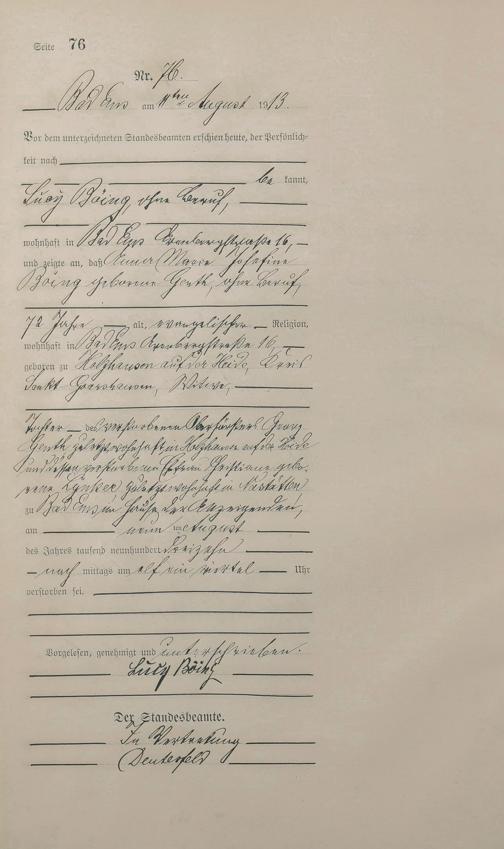 Seite 76
Nr. 76.
Bad Ems am 11ten August 1913.
Vor dem unterzeichneten Standesbeamten erschien heute, der Persönlich-
keit nach
be kannt,
Lucy Böing, ohne Beruf,
wohnhaft in Bad Ems 16,
und zeigte an, daß Anna Maria Josefine
Böing geborene Genth, ohne Beruf,
72 Jahre alt, evangelischer Religion,
wohnhaft in Bad Ems 16,
geboren zu Holzhausen auf der Heide, Kreis
Sankt Goarshausen, Witwe,
Tochter des verstorbenen Oberförsters Georg
Genth, zuletzt wohnhaft in Holzhausen auf der Heide
und dessen verstorbenen Ehefrau gebo-
rene zuletzt wohnhaft in Nastätten,
zu Bad Ems im Hause der Anzeigenden,
am neun ten August
des Jahres tausend neunhundert dreizehn
nach mittags um elf ein viertel Uhr
verstorben sei.
Vorgelesen, genehmigt und unterschrieben.
Lucy Böing
Der Standesbeamte.
In Vertretung